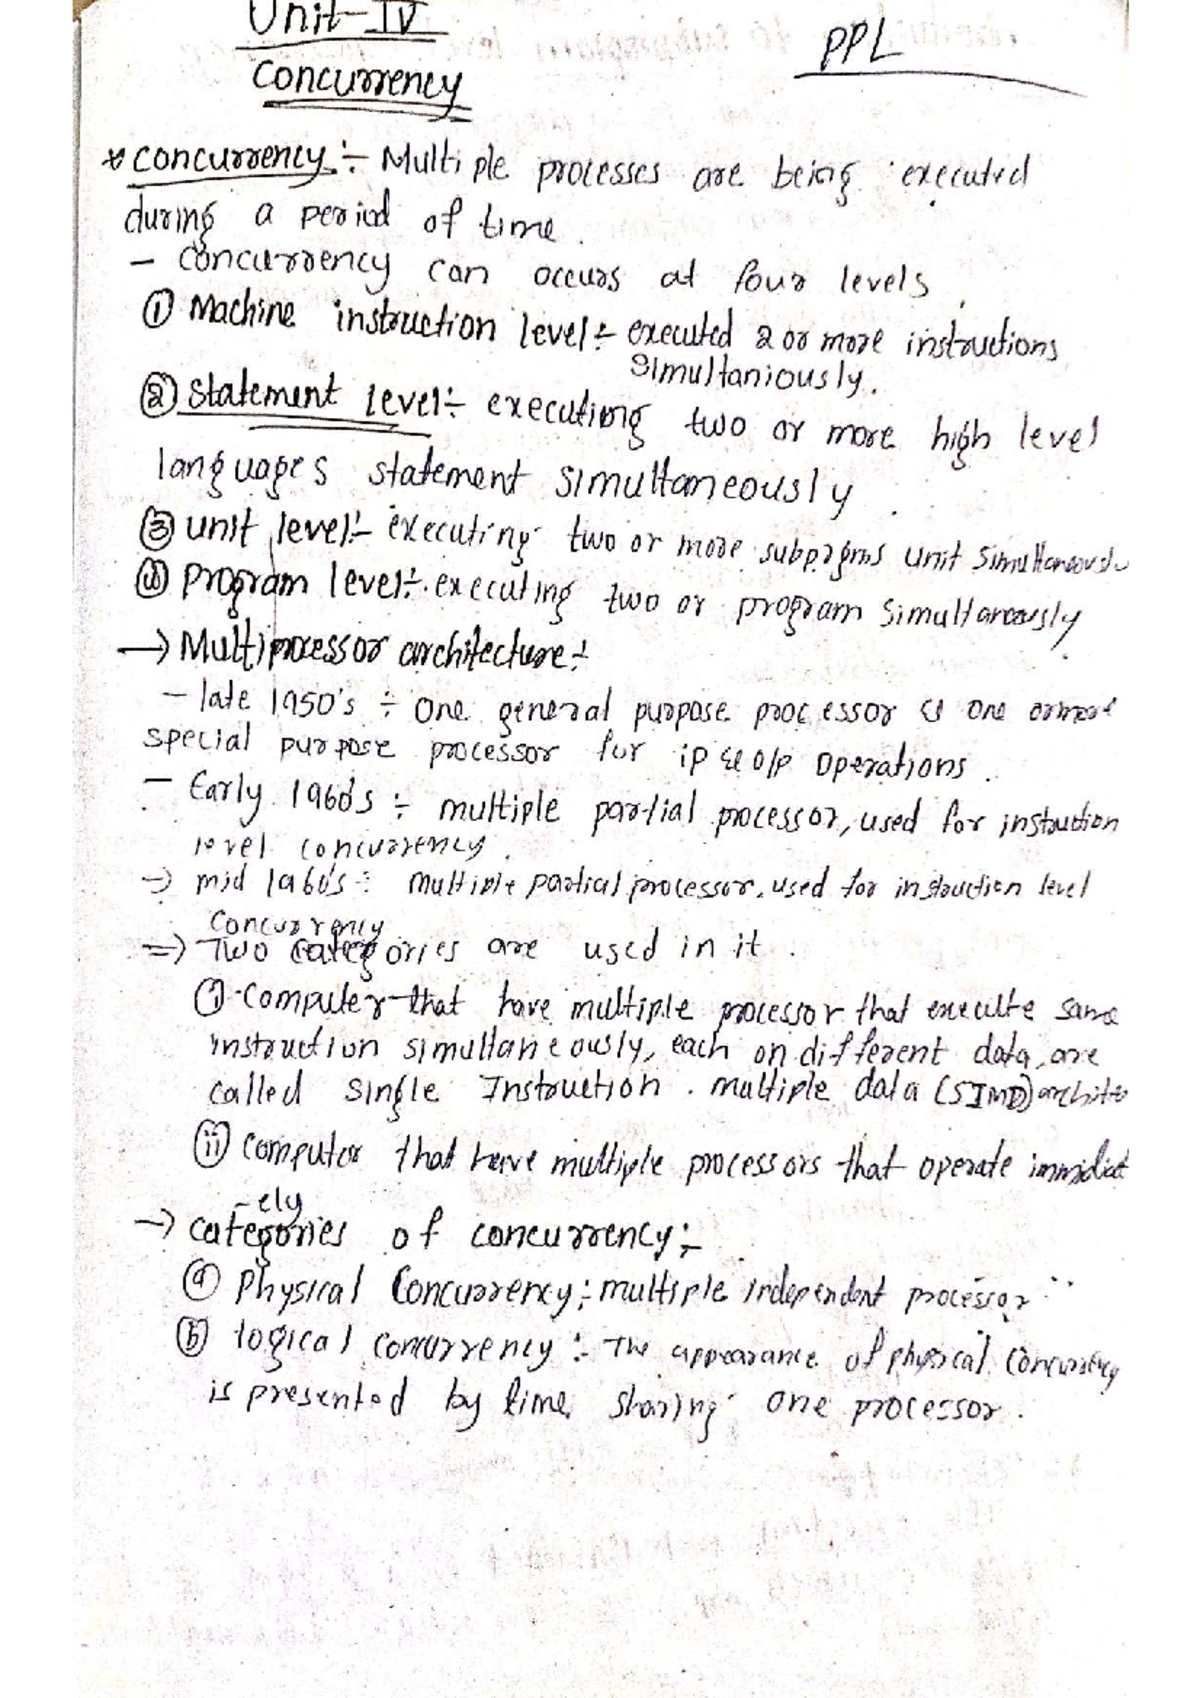 Unit-IV
PPL
Concurrency
* concurrency :- Multiple processes are being executed
during a period of time.
- concurrency can occurs at four levels.
① Machine instruction level :- executed 2 or more instructions
simultaniously.
② statement level :- executing two or more high level
languages statement simultaneously.
③ unit level :- executing two or more subprgms unit simultaneously
④ program level :- executing two or program simultaneously
→ Multiprocessor architecture :-
- late 1950's :- one general purpose processor & one or more
special purpose processor for ip & o/p operations.
- Early 1960's :- multiple partial processor, used for instruction
level concurrency.
→ mid 1960's :- multiple partial processor, used for instruction level
concurrency
⇒ Two categories are used in it.
(i) Computer that have multiple processor that execute same
instruction simultaneously, each on different data, are
called single Instruction. multiple data (SIMD) archite
(ii) computer that have multiple processors that operate immidiat
-ely
→ categories of concurrency :-
(a) Physical Concurrency :- multiple independent processor
(b) logical concurrency :- The appearance of physical concurrency
is presented by time sharing one processor.